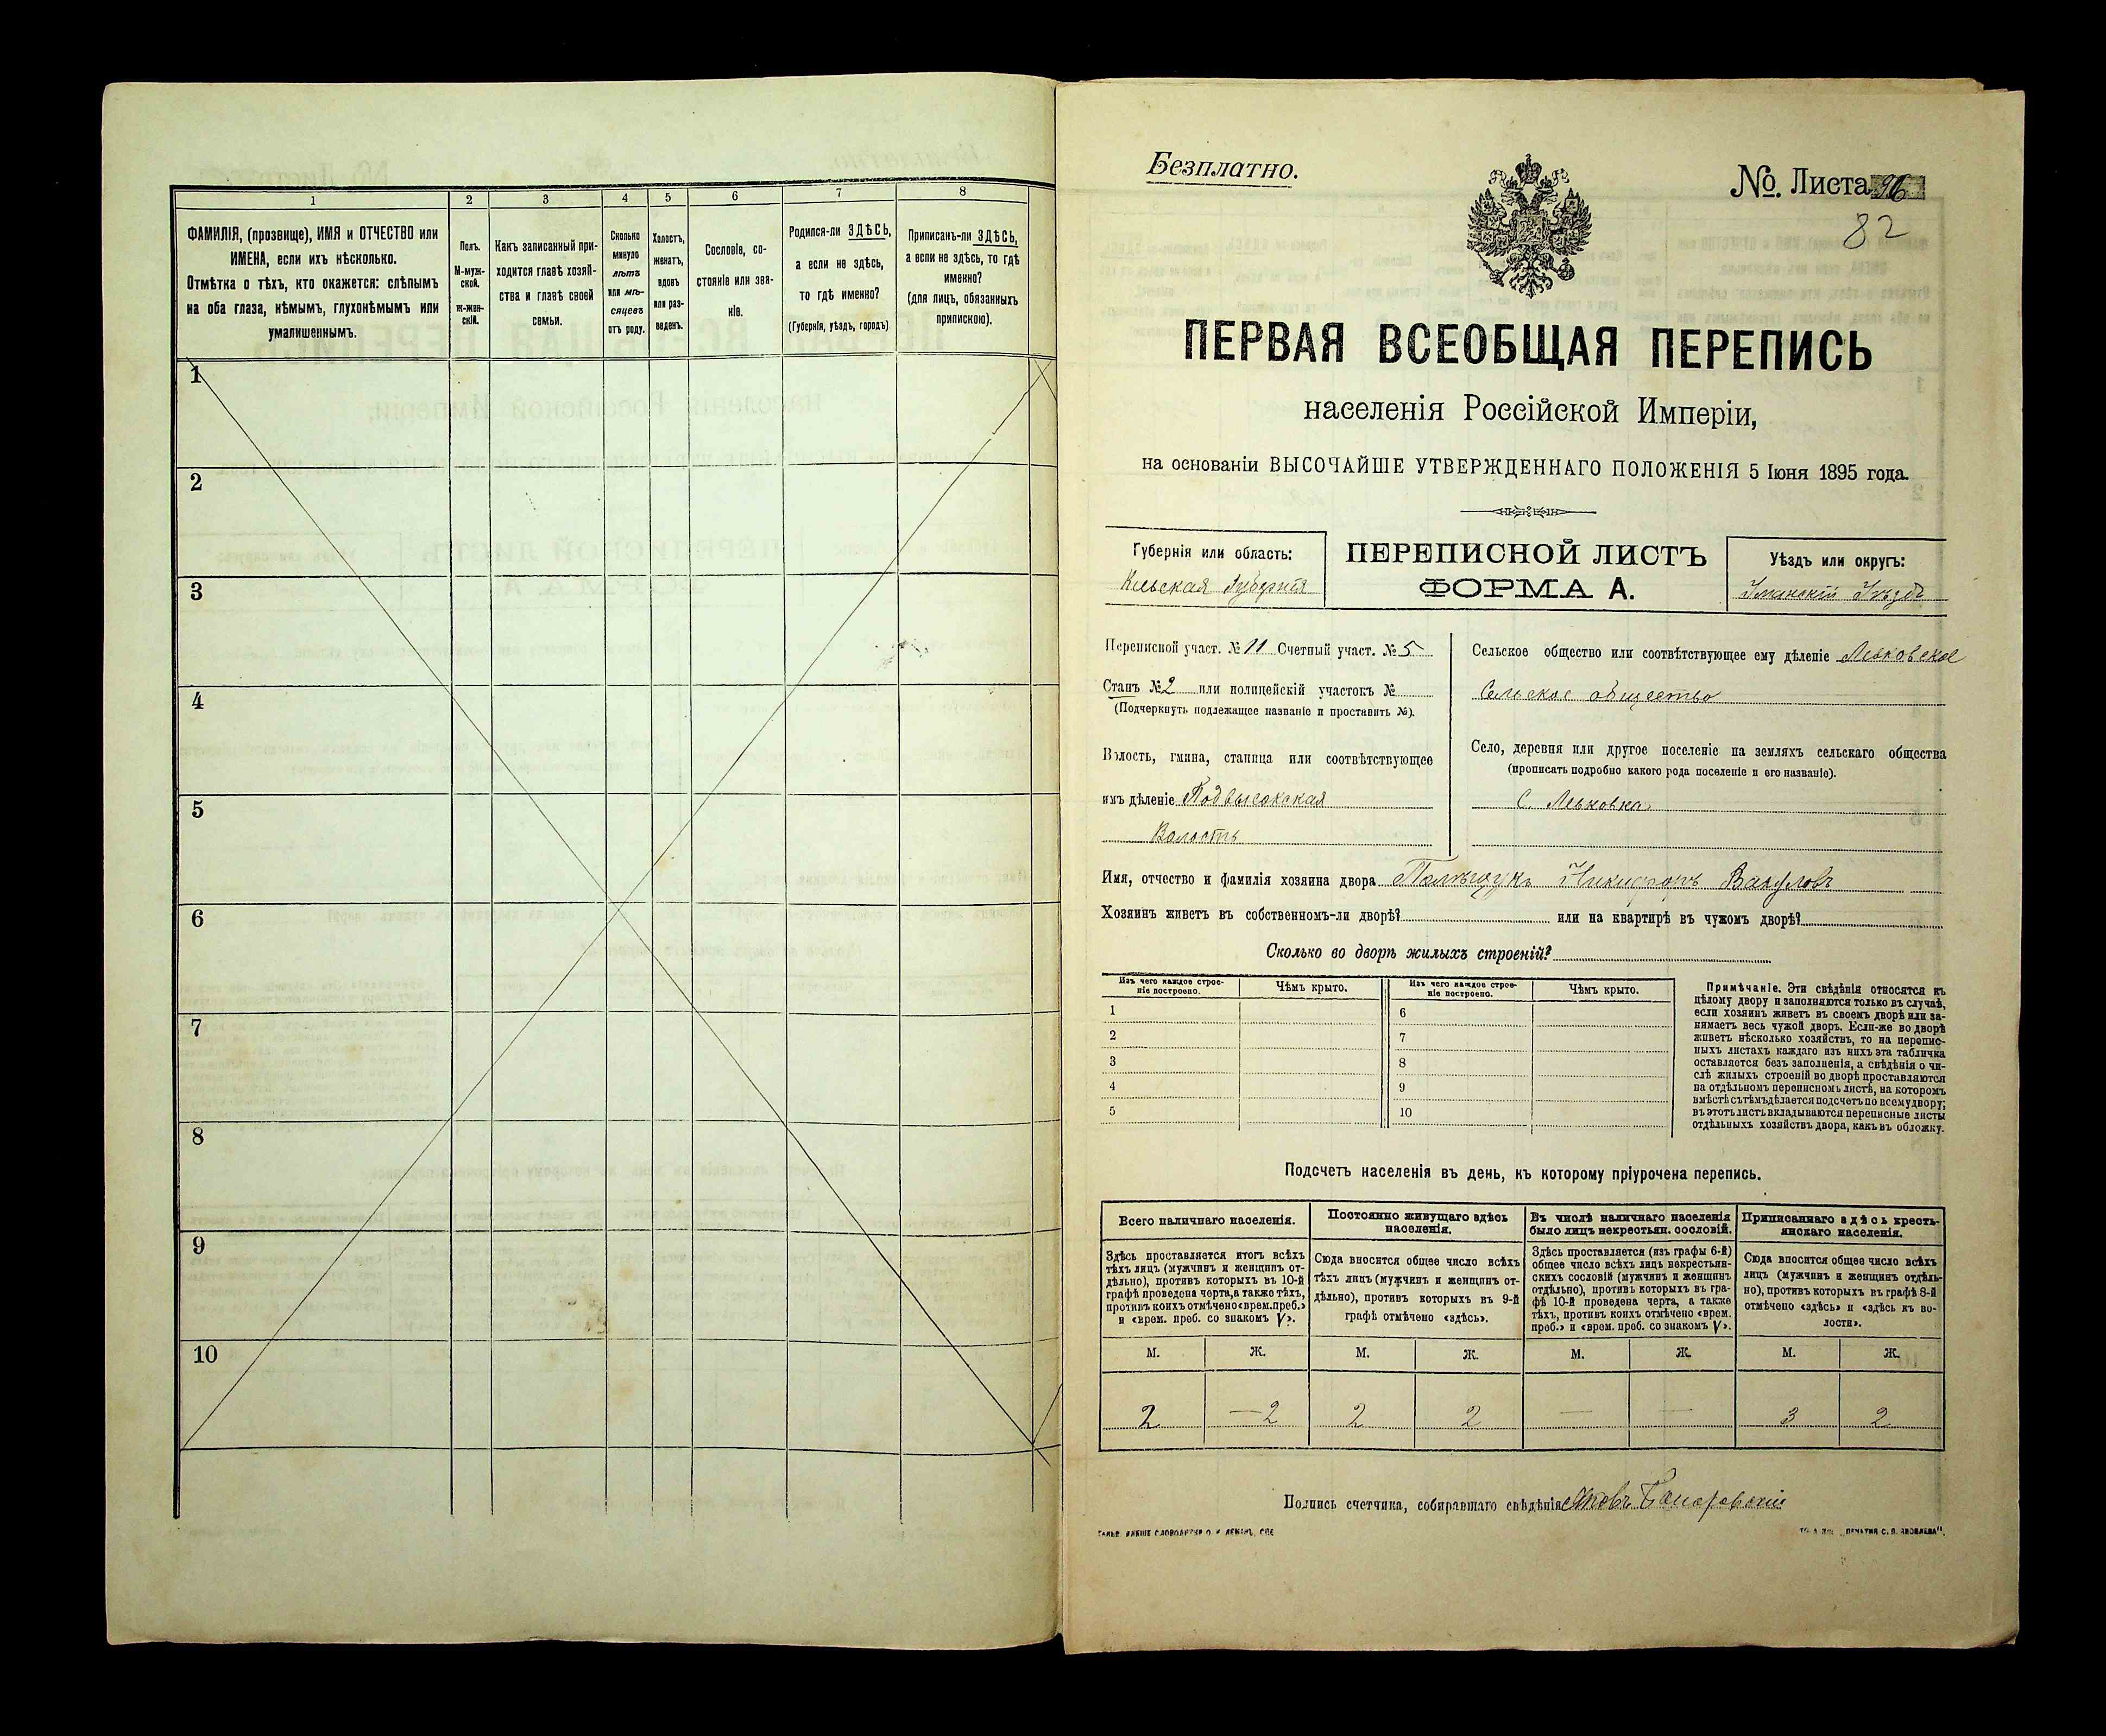 1
2
3
4
5
6
7
8
ФАМИЛІЯ, (прозвище), ИМЯ и ОТЧЕСТВО или
ИМЕНА, если ихъ нѣсколько.
Отмѣтка о тѣхъ, кто окажется: слѣпымъ
на оба глаза, нѣмымъ, глухонѣмымъ или
умалишеннымъ.
Полъ.
М-муж-
ской.
Ж-жен-
скій.
Какъ записанный при-
ходится главѣ хозяй-
ства и главѣ своей
семьи.
Сколько
минуло
лѣтъ
или мѣ-
сяцевъ
отъ роду.
Холостъ,
женатъ,
вдовъ
или раз-
веденъ.
Сословіе, со-
стояніе или зва-
ніе.
Родился-ли ЗДѢСЬ,
а если не здѣсь,
то гдѣ именно?
(Губернія, уѣздъ, городъ)
Приписанъ-ли ЗДѢСЬ,
а если не здѣсь, то гдѣ
именно?
(для лицъ, обязанныхъ
припискою).
1
2
3
4
5
6
7
8
9
10
Безплатно.
№. Листа 96
82
ПЕРВАЯ ВСЕОБЩАЯ ПЕРЕПИСЬ
населенія Россійской Имперіи,
на основаніи ВЫСОЧАЙШЕ УТВЕРЖДЕННАГО ПОЛОЖЕНІЯ 5 Іюня 1895 года.
Губернія или область:
Кіевская Губернія
ПЕРЕПИСНОЙ ЛИСТЪ
ФОРМА А.
Уѣздъ или округъ:
Уманскій Уѣздъ
Переписной участ. № 11 Счетный участ. № 5
Станъ № 2 или полицейскій участокъ №
(Подчеркнуть подлежащее названіе и проставить №).
Волость, гмина, станица или соотвѣтствующее
имъ дѣленіе Подвысокская
Волость
Сельское общество или соотвѣтствующее ему дѣленіе Левковское
Сельское общество
Село, деревня или другое поселеніе на земляхъ сельскаго общества
(прописать подробно какого рода поселеніе и его названіе).
С. Левковка
Имя, отчество и фамилія хозяина двора Полѣщукъ Никифоръ Вакуловъ
Хозяинъ живетъ въ собственномъ-ли дворѣ? или на квартирѣ въ чужомъ дворѣ?
Сколько во дворѣ жилыхъ строеній?
Изъ чего каждое строе-
ніе построено.
Чѣмъ крыто.
Изъ чего каждое строе-
ніе построено.
Чѣмъ крыто.
1
2
3
4
5
6
7
8
9
10
Примѣчаніе. Эти свѣдѣнія относятся къ
цѣлому двору и заполняются только въ случаѣ,
если хозяинъ живетъ въ своемъ дворѣ или за-
нимаетъ весь чужой дворъ. Если-же во дворѣ
живетъ нѣсколько хозяйствъ, то на перепис-
ныхъ листахъ каждаго изъ нихъ эта табличка
оставляется безъ заполненія, а свѣдѣнія о чи-
слѣ жилыхъ строеній во дворѣ проставляются
на отдѣльномъ переписномъ листѣ, на которомъ
вмѣстѣ съ тѣмъ дѣлается подсчетъ по всему двору;
въ этотъ листъ вкладываются переписные листы
отдѣльныхъ хозяйствъ двора, какъ въ обложку.
Подсчетъ населенія въ день, къ которому пріурочена перепись.
Всего наличнаго населенія.
Постоянно живущаго здѣсь
населенія.
Въ числѣ наличнаго населенія
было лицъ некрестьян. сословій.
Приписаннаго здѣсь кресть-
янскаго населенія.
Здѣсь проставляется итогъ всѣхъ
тѣхъ лицъ (мужчинъ и женщинъ от-
дѣльно), противъ которыхъ въ 10-й
графѣ проведена черта, а также тѣхъ,
противъ коихъ отмѣчено «врем. преб.»
и «врем. преб. со знакомъ V».
Сюда вносится общее число всѣхъ
тѣхъ лицъ (мужчинъ и женщинъ от-
дѣльно), противъ которыхъ въ 9-й
графѣ отмѣчено «здѣсь».
Здѣсь проставляется (изъ графы 6-й)
общее число всѣхъ лицъ некрестьян-
скихъ сословій (мужчинъ и женщинъ
отдѣльно), противъ которыхъ въ гра-
фѣ 10-й проведена черта, а также
тѣхъ, противъ коихъ отмѣчено «врем.
преб.» и «врем. преб. со знакомъ V».
Сюда вносится общее число всѣхъ
лицъ (мужчинъ и женщинъ отдѣль-
но), противъ которыхъ въ графѣ 8-й
отмѣчено «здѣсь» и «здѣсь къ во-
лости».
М. Ж. М. Ж. М. Ж. М. Ж.
2 — 2 2 2 — — 3 2
Подпись счетчика, собиравшаго свѣдѣнія Яковъ